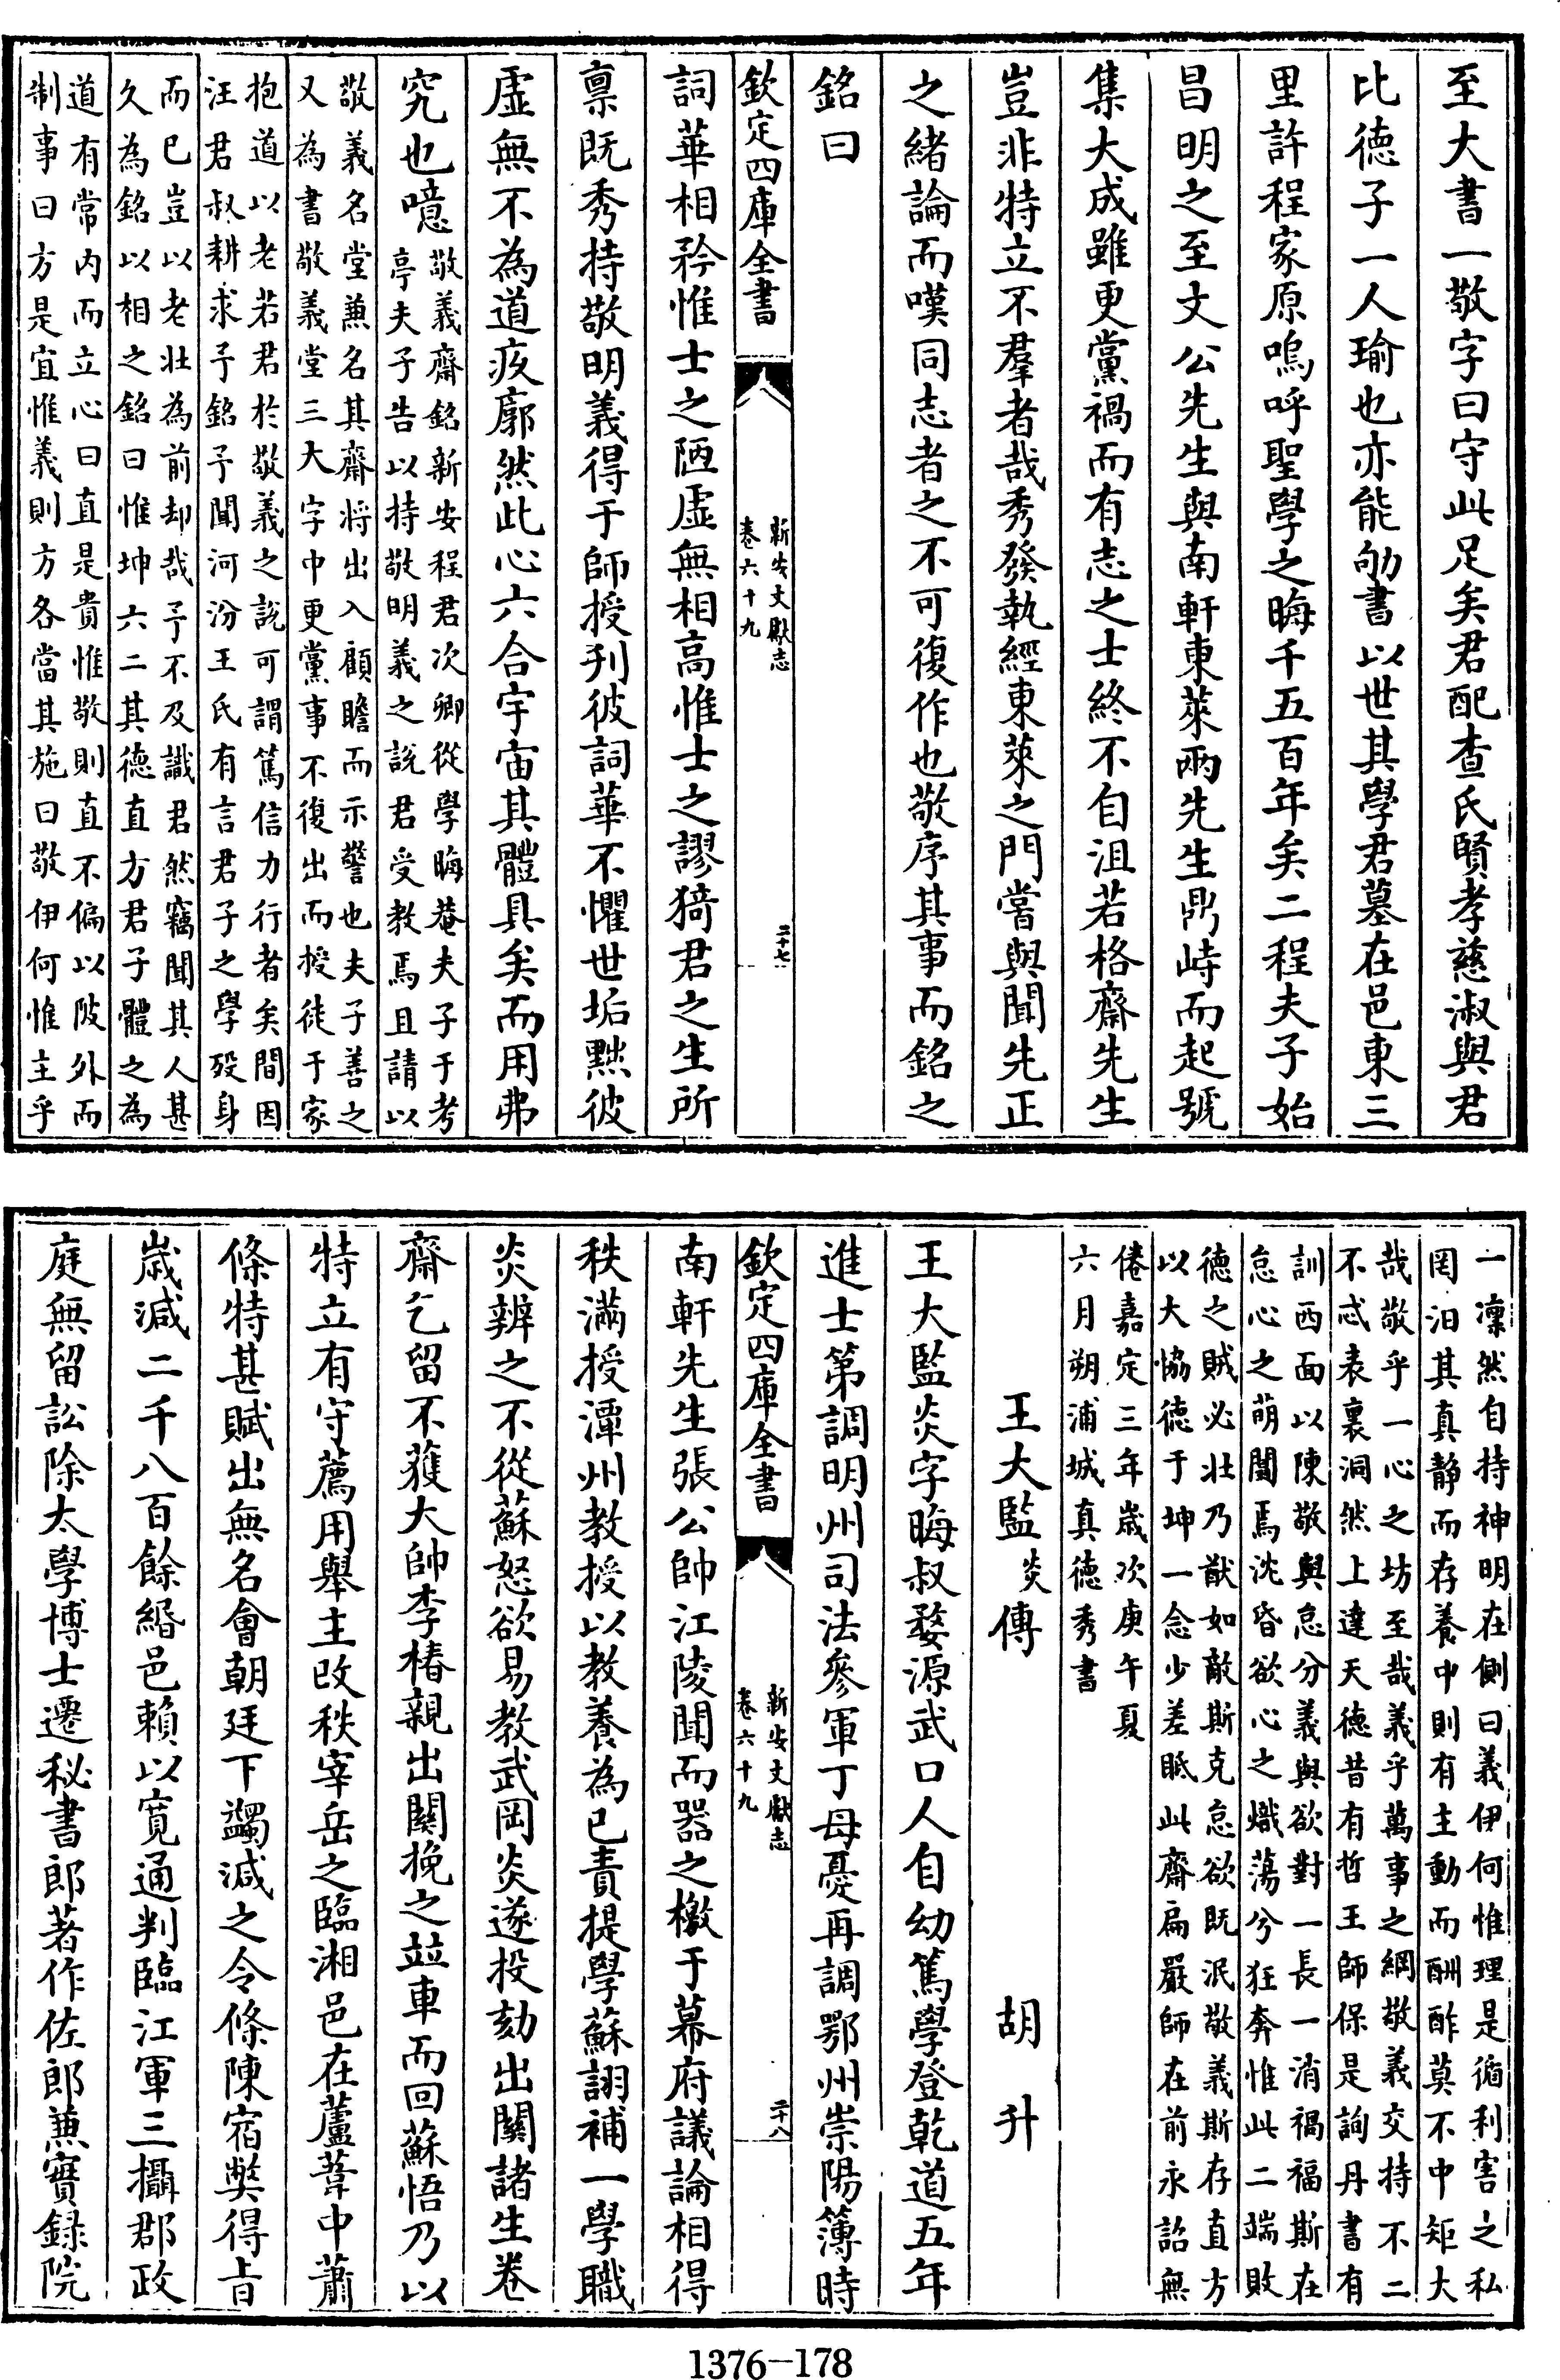 至大書一敬字曰守此足矣君配查氏賢孝慈淑與君
比德子一人瑜也亦能劬書以世其學君墓在邑東三
里許程家原嗚呼聖學之晦千五百年矣二程夫子始
昌明之至文公先生與南軒東萊兩先生鼎峙而起號
集大成雖更黨禍而有志之士終不自沮若格齋先生
豈非特立不羣者哉秀發執經東萊之門嘗與聞先正
之緒論而嘆同志者之不可復作也敬序其事而銘之
銘曰
欽定四庫全書
新安文獻志
卷六十九
二十七
詞華相矜惟士之陋虛無相高惟士之謬猗君之生所
禀既秀持敬明義得于師授刋彼詞華不懼世垢黙彼
虛無不為道疚廓然此心六合宇宙其體具矣而用弗
究也噫
敬義齋銘新安程君次卿從學晦菴夫子于考
亭夫子告以持敬明義之說君受教焉且請以
敬義名堂兼名其齋將出入顧瞻而示警也夫子善之
又為書敬義堂三大字中更黨事不復出而授徒于家
抱道以老若君於敬義之說可謂篤信力行者矣間因
汪君叔耕求予銘予聞河汾王氏有言君子之學殁身
而已豈以老壯為前却哉予不及識君然竊聞其人甚
久為銘以相之銘曰惟坤六二其德直方君子體之為
道有常内而立心曰直是貴惟敬則直不偏以陂外而
制事曰方是宜惟義則方各當其施曰敬伊何惟主乎
一凜然自持神明在側曰義伊何惟理是循利害之私
罔汩其真静而存養中則有主動而酬酢莫不中矩大
哉敬乎一心之坊至哉義乎萬事之綱敬義交持不二
不忒表裏洞然上達天德昔有哲王師保是詢丹書有
訓西面以陳敬與怠分義與欲對一長一消禍福斯在
怠心之萌闇焉沈昏欲心之熾蕩兮狂奔惟此二端敗
德之賊必壯乃猷如敵斯克怠欲既泯敬義斯存直方
以大恊德于坤一念少差眡此齋扁嚴師在前永詔無
倦嘉定三年歲次庚午夏
六月朔浦城真德秀書
王大監炎傳
胡升
王大監炎字晦叔婺源武口人自幼篤學登乾道五年
進士第調明州司法參軍丁母憂再調鄂州崇陽簿時
欽定四庫全書
新安文獻志
卷六十九
二十八
南軒先生張公帥江陵聞而器之檄于幕府議論相得
秩滿授潭州教授以教養為已責提學蘇詡補一學職
炎辨之不從蘇怒欲易教武岡炎遂投劾出關諸生卷
齋乞留不䕶大帥李椿親出關挽之竝車而回蘇悟乃以
特立有守薦用舉主改秩宰岳之臨湘邑在蘆葦中蕭
條特甚賦出無名會朝廷下蠲減之令條陳宿獘得㫖
歲減二千八百餘緡邑賴以寛通判臨江軍三攝郡政
庭無留訟除太學博士遷秘書郎著作佐郎兼實録院
1376-178